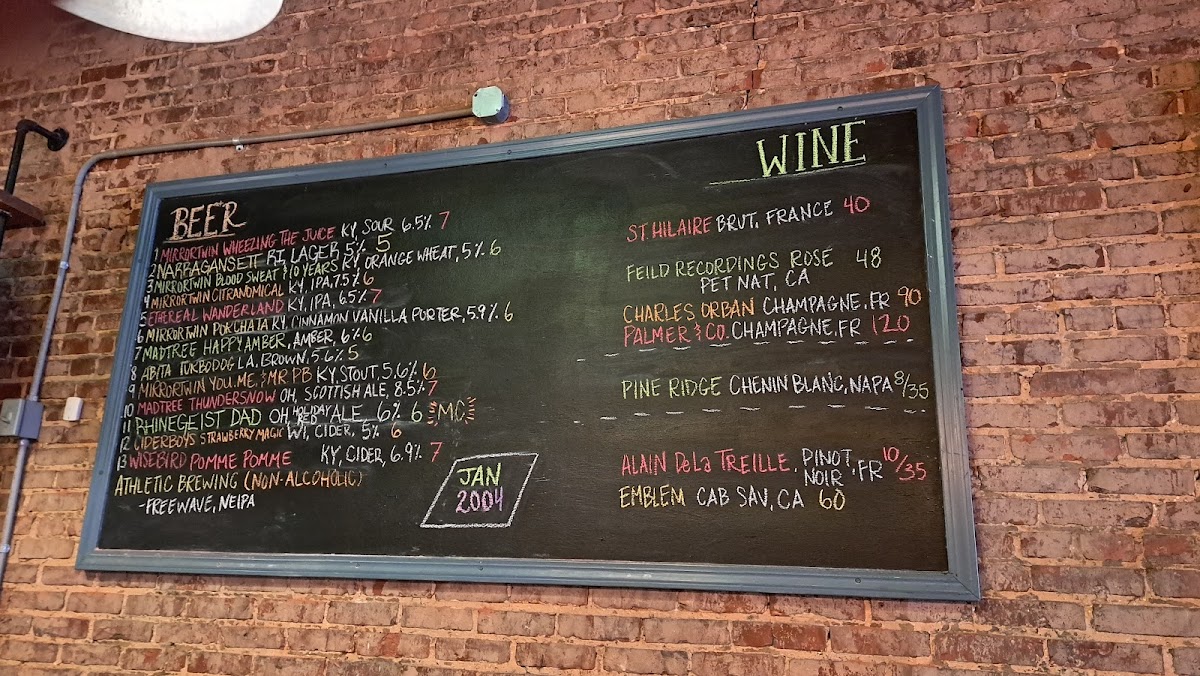 BEER
1 MIRRORTWIN WHEEZING THE JUICE KY, SOUR 6.5% 7
2 NARRAGANSETT RI, LAGER 5% 5
3 MIRRORTWIN BLOOD SWEAT & 10 YEARS KY ORANGE WHEAT, 5% 6
4 MIRRORTWIN CITRANOMICAL KY, IPA, 7.5% 6
5 ETHEREAL WANDERLAND KY, IPA, 6.5% 7
6 MIRRORTWIN PORCHATA KY, CINNAMON VANILLA PORTER, 5.9% 6
7 MADTREE HAPPY AMBER, AMBER, 6% 6
8 ABITA TURBODOG LA, BROWN, 5.6% 5
9 MIRRORTWIN YOU, ME, & MR PB KY, STOUT, 5.6% 6
10 MADTREE THUNDERSNOW OH, SCOTTISH ALE, 8.5% 7
11 RHINEGEIST DAD OH, HOLIDAY RED ALE, 6% 6 MC
12 CIDERBOYS STRAWBERRY MAGIC WI, CIDER, 5% 6
13 WISEBIRD POMME POMME KY, CIDER, 6.9% 7
ATHLETIC BREWING (NON-ALCOHOLIC)
-FREEWAVE, NEIPA
JAN
2004
WINE
ST. HILAIRE BRUT, FRANCE 40
FEILD RECORDINGS ROSE 48
PET NAT, CA
CHARLES ORBAN CHAMPAGNE, FR 90
PALMER & CO. CHAMPAGNE, FR 120
PINE RIDGE CHENIN BLANC, NAPA 8/35
ALAIN DeLa TREILLE, PINOT NOIR, FR 10/35
EMBLEM CAB SAV, CA 60